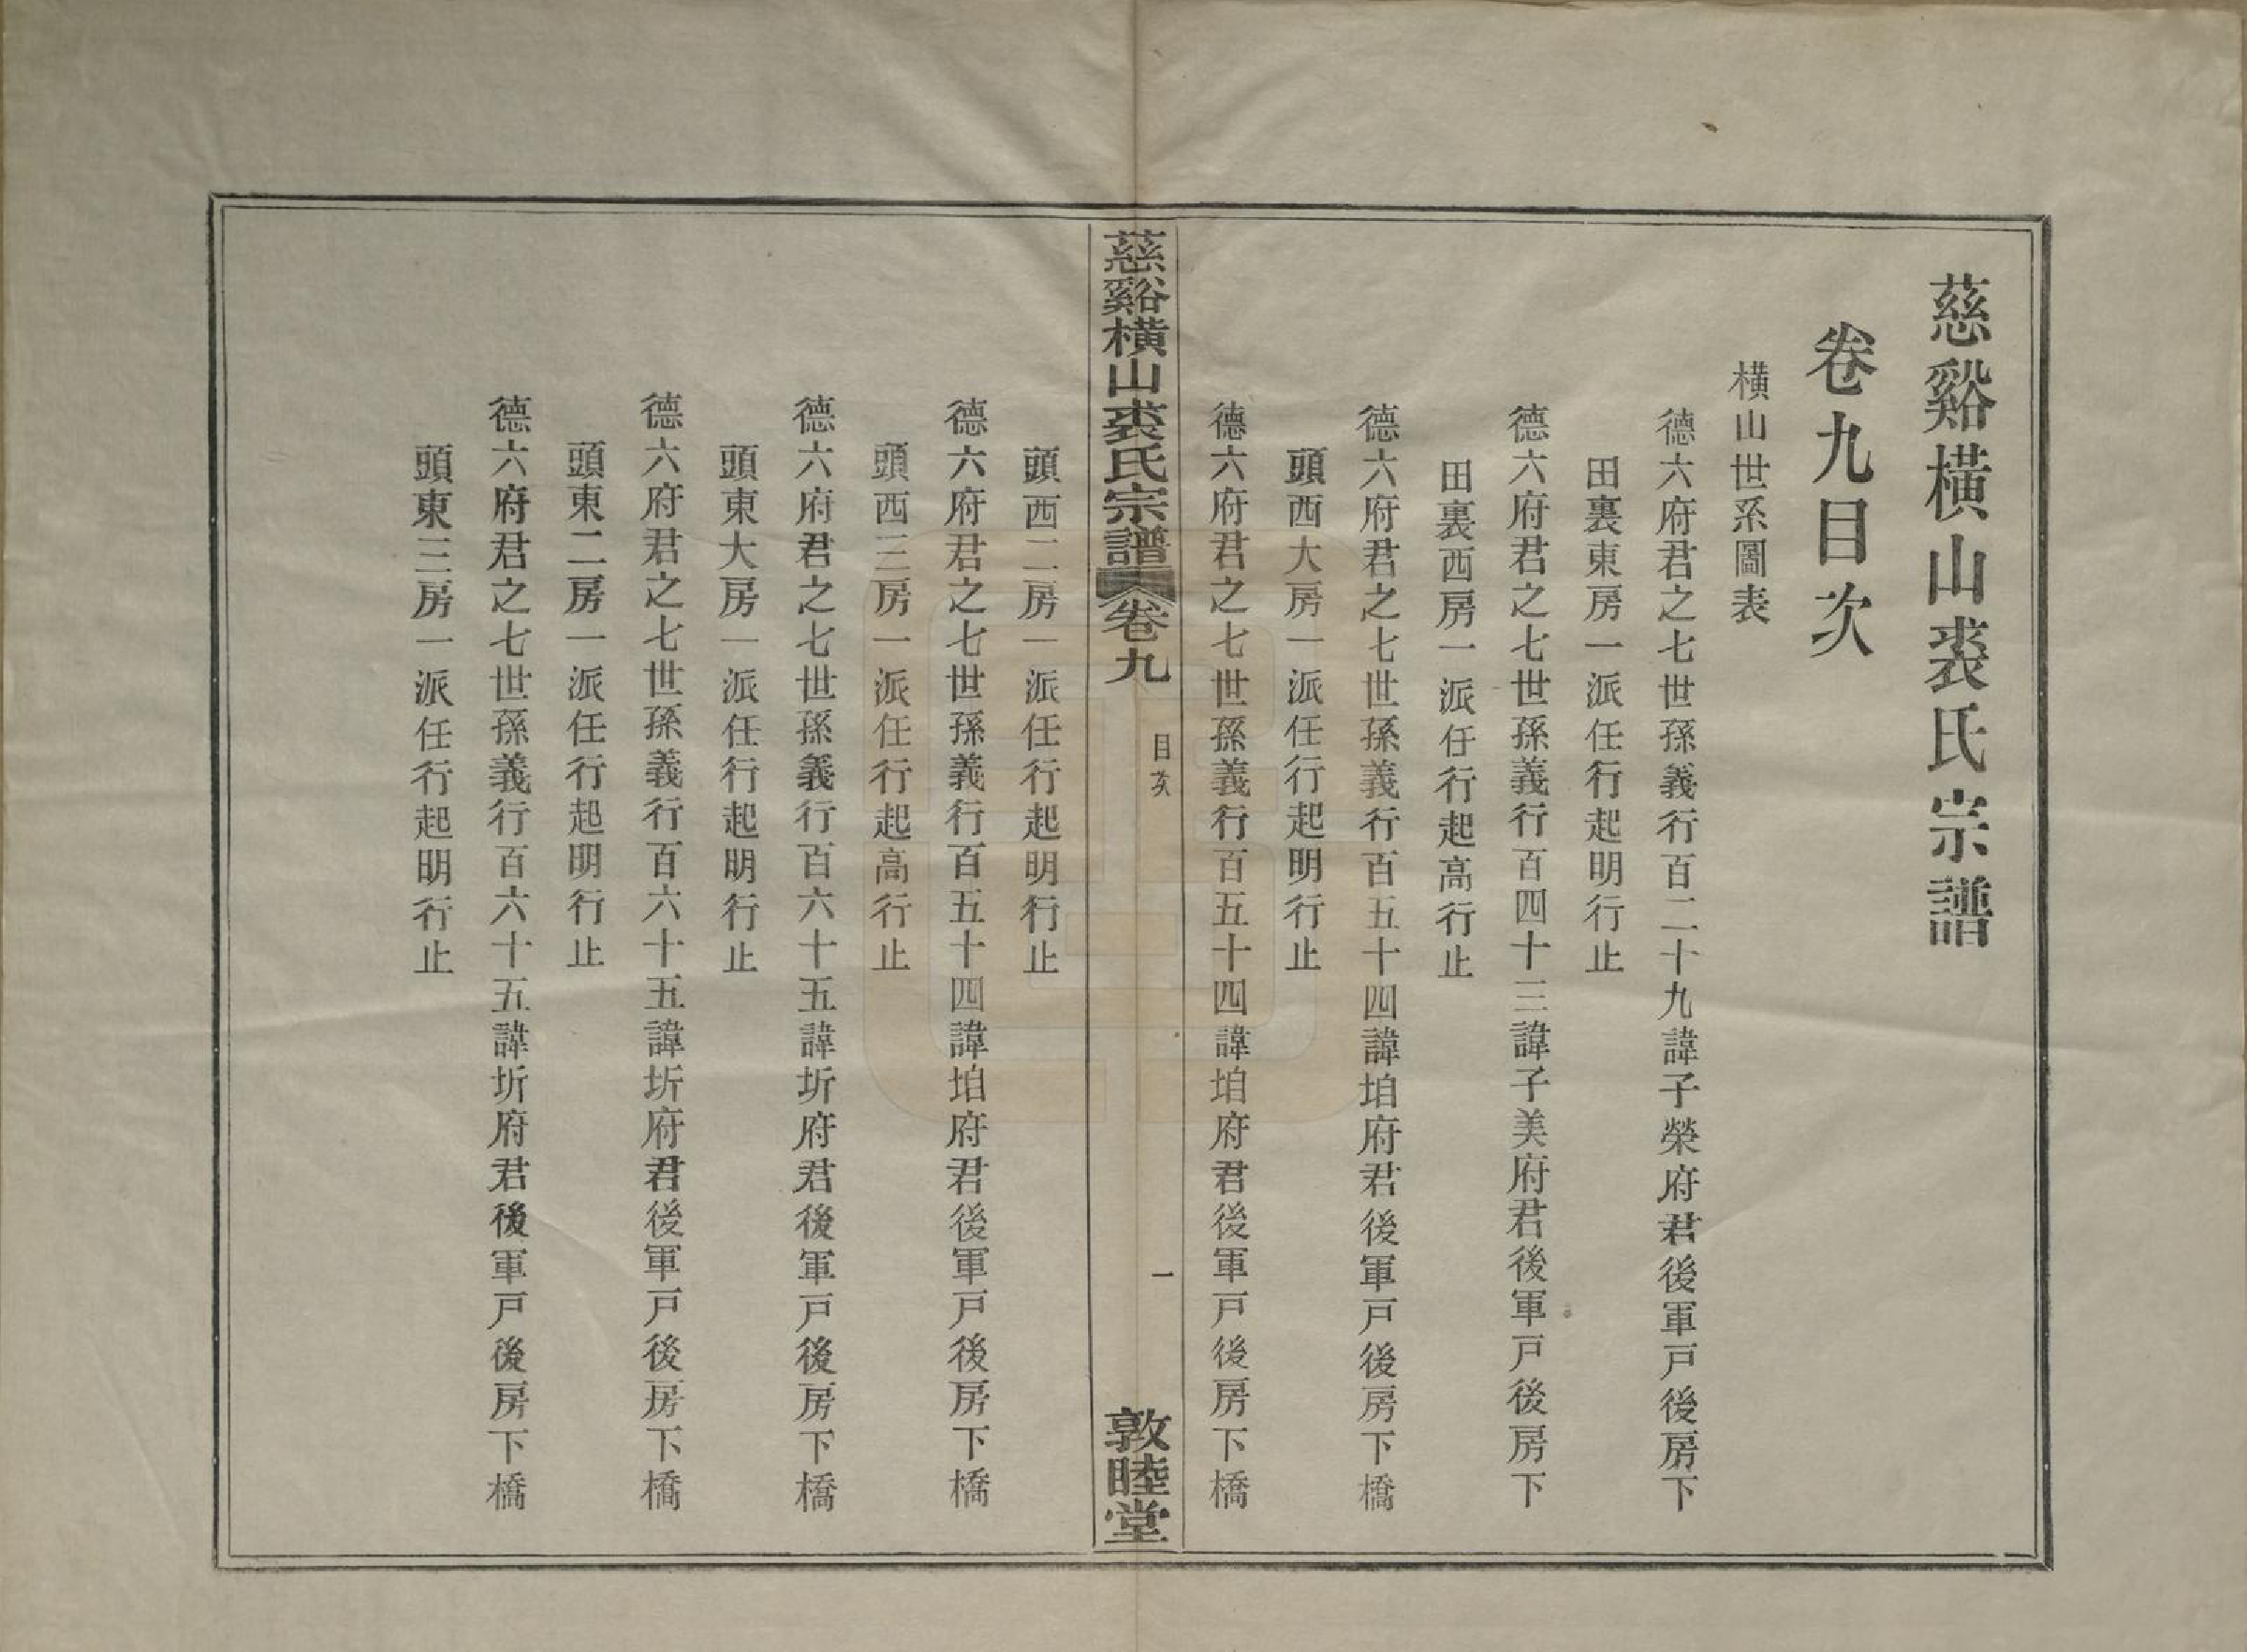 慈谿橫山裘氏宗譜
卷九目次
橫山世系圖表
德六府君之七世孫義行百二十九諱子榮府君後軍戸後房下
田裏東房一派任行起明行止
德六府君之七世孫義行百四十三諱子美府君後軍戸後房下
田裏西房一派任行起高行止
德六府君之七世孫義行百五十四諱垍府君後軍戸後房下橋
頭西大房一派任行起明行止
德六府君之七世孫義行百五十四諱垍府君後軍戸後房下橋
慈谿橫山裘氏宗譜
卷九
目次
一
敦睦堂
頭西二房一派任行起明行止
德六府君之七世孫義行百五十四諱垍府君後軍戸後房下橋
頭西三房一派任行起高行止
德六府君之七世孫義行百六十五諱圻府君後軍戸後房下橋
頭東大房一派任行起明行止
德六府君之七世孫義行百六十五諱圻府君後軍戸後房下橋
頭東二房一派任行起明行止
德六府君之七世孫義行百六十五諱圻府君後軍戸後房下橋
頭東三房一派任行起明行止